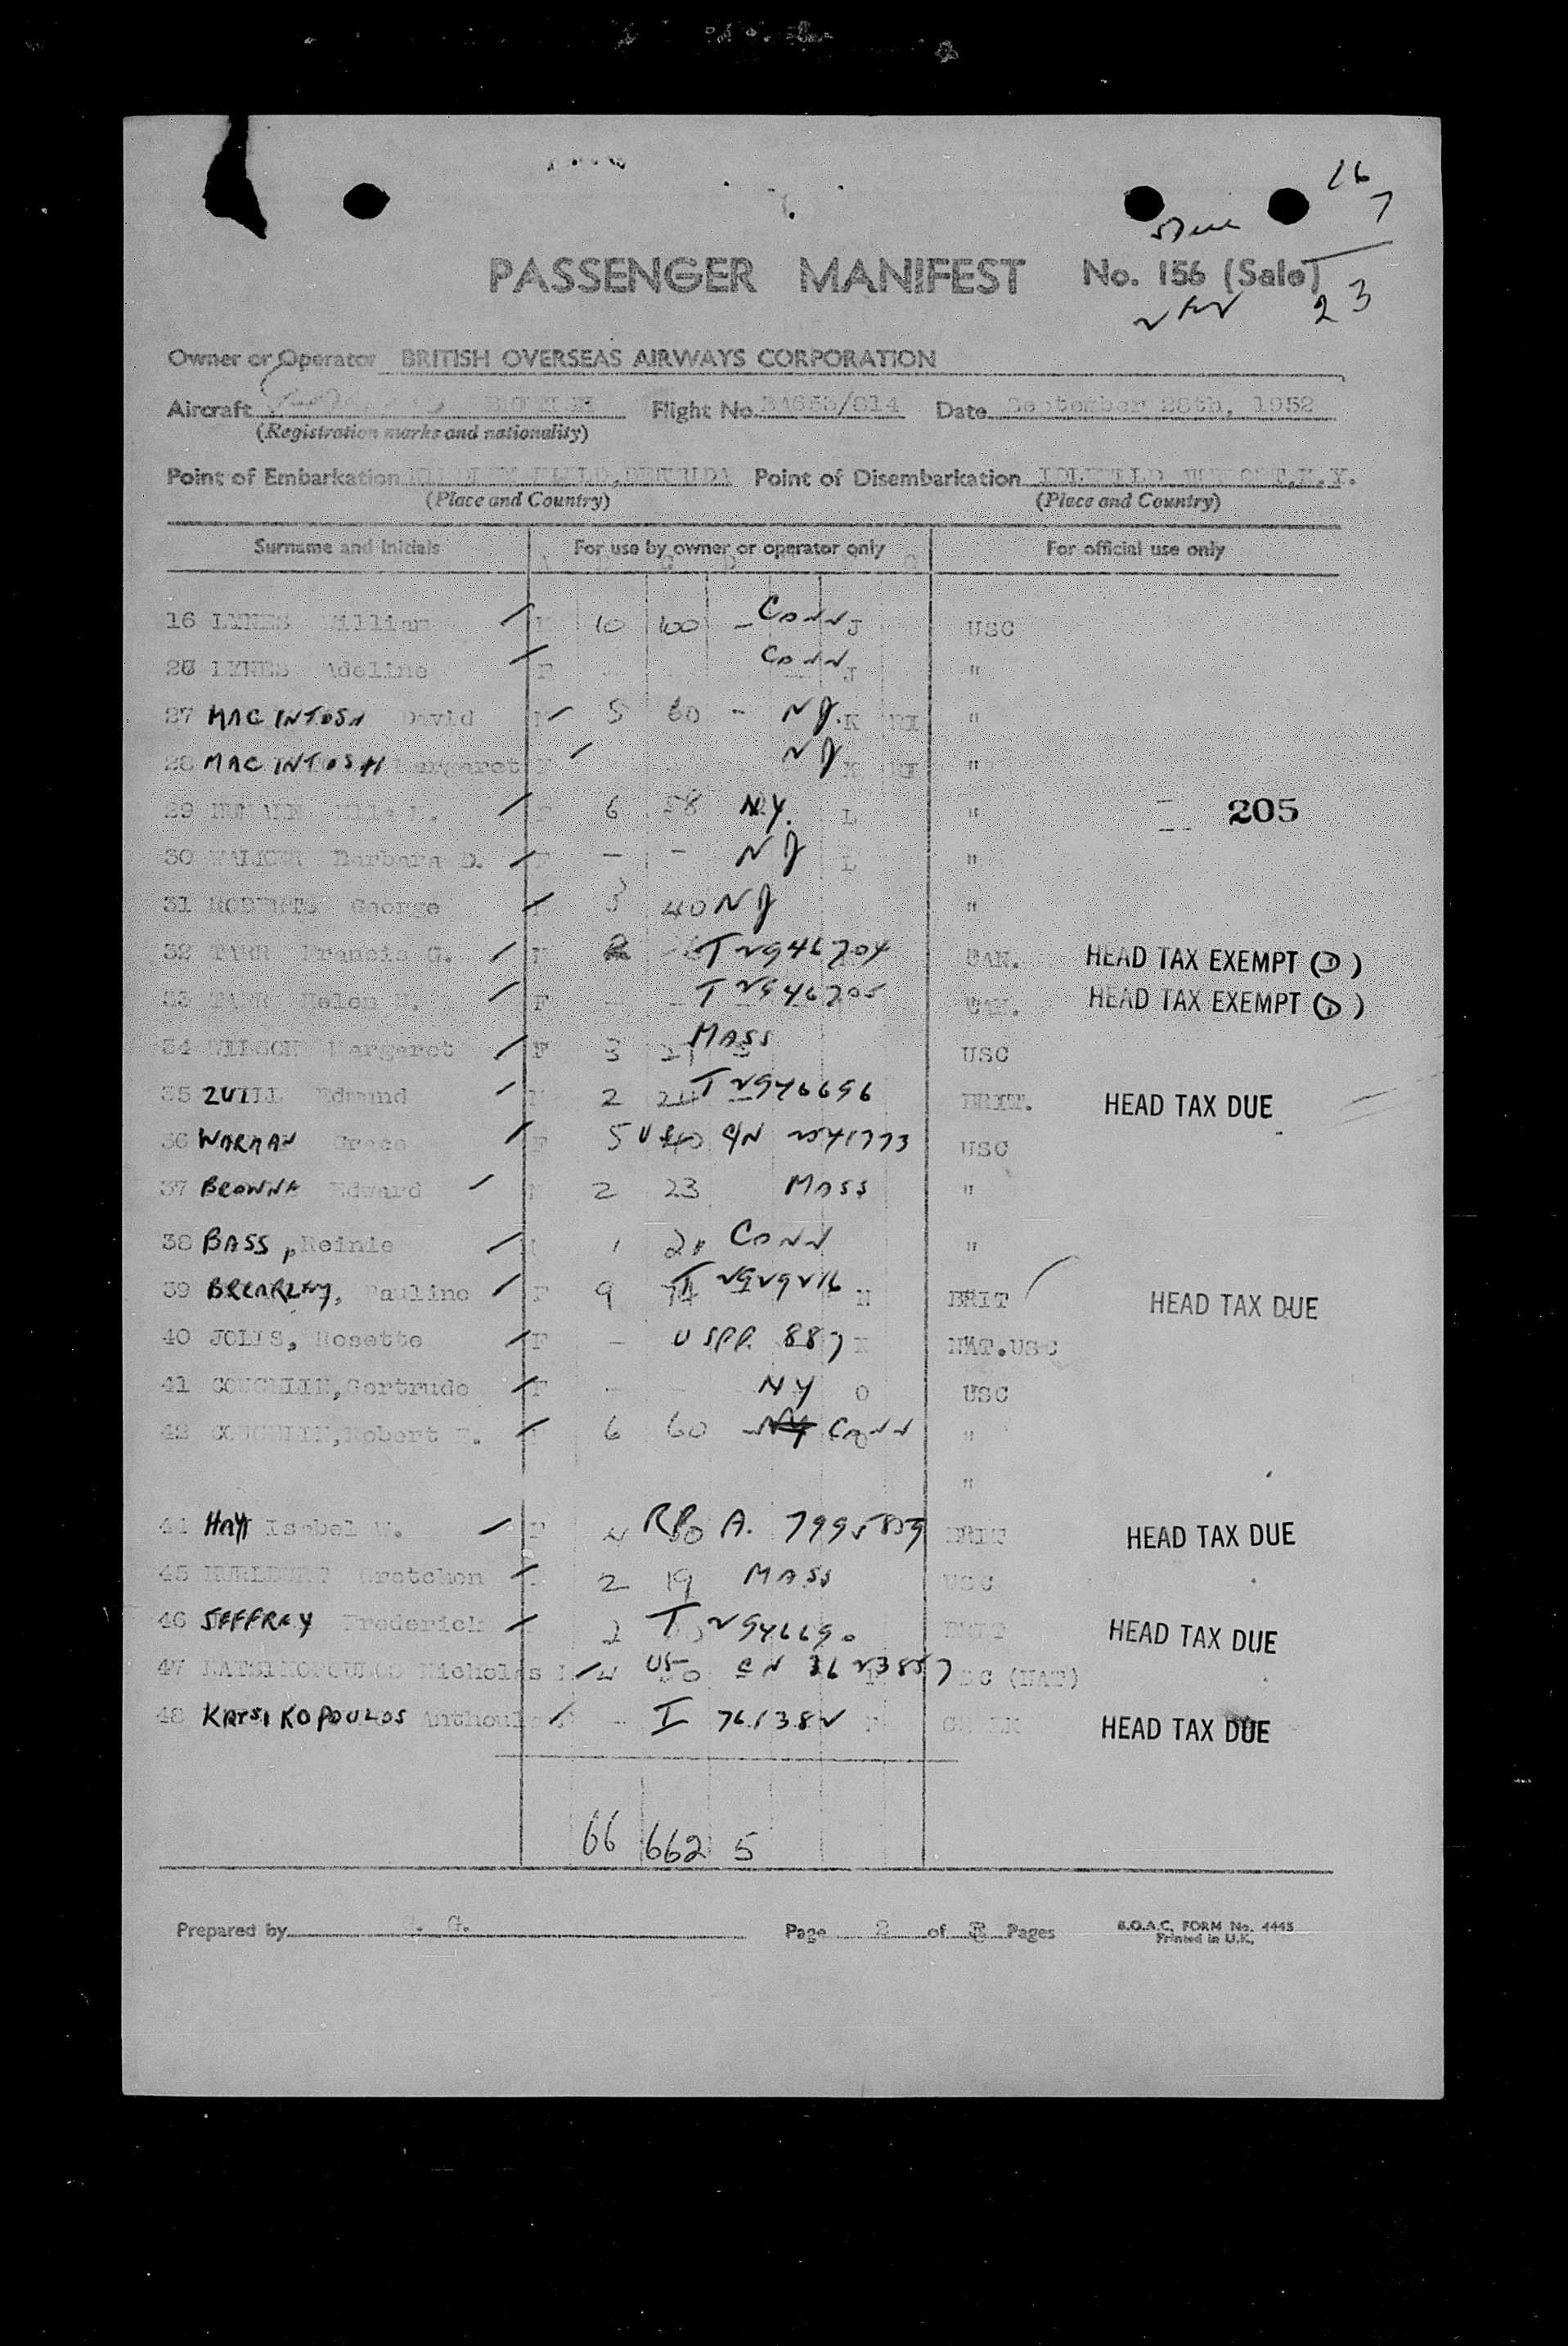 16
7
5 Due
PASSENGER MANIFEST No. 156 (Sale)
23
Owner or Operator BRITISH OVERSEAS AIRWAYS CORPORATION
Aircraft BRITISH Flight No. BA653/814 Date September 28th, 1952
(Registration marks and nationality)
Point of Embarkation KINDLEY FIELD, BERMUDA Point of Disembarkation IDLEWILD AIRPORT, N.Y.
(Place and Country) (Place and Country)
Surname and Initials For use by owner or operator only For official use only
16 LYNES William M 10 100 - CONN J USC
26 LYNES Adeline F CONN J "
27 MACINTOSH David 5 60 - NJ. K "
28 MACINTOSH Margaret F NJ K "
29 6 58 N.Y. L "
205
30 Barbara D. F - - NJ L "
31 ROBERTS George 3 40 NJ "
32 TARR Francis G. M 2 T 2946704 CAN. HEAD TAX EXEMPT (D)
33 TARR Helen F - - T 2946705 CAN. HEAD TAX EXEMPT (D)
34 WILSON Margaret F 3 21 MASS USC
35 ZUILL Edmund M 2 24 T 2946696 BRIT. HEAD TAX DUE
36 WARMAN Grace F 5 40 US C/N 2541773 USC
37 BROWNE Edward 2 23 MASS "
38 BASS, Reinie 1 21 CONN "
39 BREARLEY, Pauline F 9 74 T 2929216 N BRIT HEAD TAX DUE
40 JOLIS, Rosette F - US P.P. 887 NAT.USC
41 COUGHLIN, Gertrude F - - NY O USC
42 COUGHLIN, Robert E. 6 60 NY CONN "
"
44 HAY Isabel W. F RP A. 7995809 BRIT HEAD TAX DUE
45 HURLBURT Gretchen 2 19 MASS USC
46 JEFFREY Frederick 2 T 2946690 BRIT HEAD TAX DUE
47 KATSIKOPOULOS Nicholas US CN 3623857 USC (NAT)
48 KATSIKOPOULOS - I 761382 GREEK HEAD TAX DUE
66 662 5
Prepared by G. Page 2 of 3 Pages B.O.A.C. FORM No. 4445
Printed in U.K.